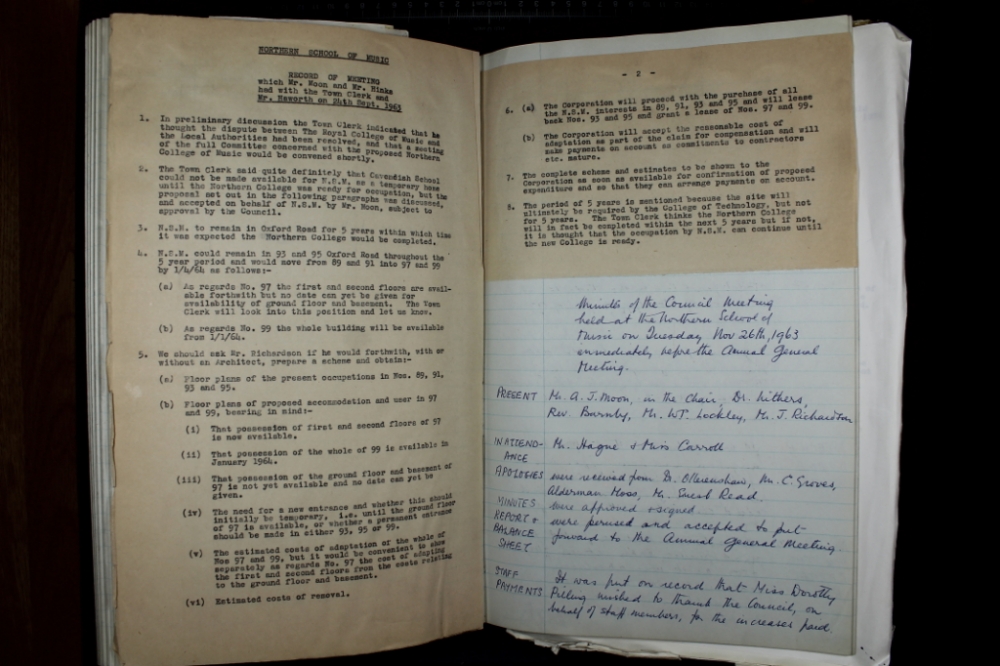 NORTHERN SCHOOL OF MUSIC
RECORD OF MEETING
which Mr. Moon and Mr. Hinks
had with the Town Clerk and
Mr. Haworth on 24th Sept. 1963
1. In preliminary discussion the Town Clerk indicated that he
thought the dispute between The Royal College of Music and
the Local Authorities had been resolved, and that a meeting
of the full Committee concerned with the proposed Northern
College of Music would be convened shortly.
2. The Town Clerk said quite definitely that Cavendish School
could not be made available for N.S.M. as a temporary home
until the Northern College was ready for occupation, but the
proposal set out in the following paragraphs was discussed,
and accepted on behalf of N.S.M. by Mr. Moon, subject to
approval by the Council.
3. N.S.M. to remain in Oxford Road for 5 years within which time
it was expected the Northern College would be completed.
4. N.S.M. could remain in 93 and 95 Oxford Road throughout the
5 year period and would move from 89 and 91 into 97 and 99
by 1/4/64 as follows:-
(a) As regards No. 97 the first and second floors are avail-
able forthwith but no date can yet be given for
availability of ground floor and basement. The Town
Clerk will look into this position and let us know.
(b) As regards No. 99 the whole building will be available
from 1/1/64.
5. We should ask Mr. Richardson if he would forthwith, with or
without an Architect, prepare a scheme and obtain:-
(a) Floor plans of the present occupations in Nos. 89, 91,
93 and 95.
(b) Floor plans of proposed accommodation and user in 97
and 99, bearing in mind:-
(i) That possession of first and second floors of 97
is now available.
(ii) That possession of the whole of 99 is available in
January 1964.
(iii) That possession of the ground floor and basement of
97 is not yet available and no date can yet be
given.
(iv) The need for a new entrance and whether this should
initially be temporary, i.e. until the ground floor
of 97 is available, or whether a permanent entrance
should be made in either 93, 95 or 99.
(v) The estimated costs of adaptation of the whole of
Nos 97 and 99, but it would be convenient to show
separately as regards No. 97 the cost of adapting
the first and second floors from the costs relating
to the ground floor and basement.
(vi) Estimated costs of removal.
- 2 -
6. (a) The Corporation will proceed with the purchase of all
the N.S.M. interests in 89, 91, 93 and 95 and will lease
back Nos. 93 and 95 and grant a lease of Nos. 97 and 99.
(b) The Corporation will accept the reasonable cost of
adaptation as part of the claim for compensation and will
make payments on account as commitments to contractors
etc. mature.
7. The complete scheme and estimates to be shown to the
Corporation as soon as available for confirmation of proposed
expenditure and so that they can arrange payments on account.
8. The period of 5 years is mentioned because the site will
ultimately be required by the College of Technology, but not
for 5 years. The Town Clerk thinks the Northern College
will in fact be completed within the next 5 years but if not,
it is thought that the occupation by N.S.M. can continue until
the new College is ready.
Minutes of the Council Meeting
held at the Northern School of
Music on Tuesday Nov 26th, 1963
immediately before the Annual General
Meeting.
PRESENT Mr. A. J. Moon, in the Chair, Dr. Withers,
Rev. Barnby, Mr. W.T. Lockley, Mr. J. Richardson
IN ATTEND-
ANCE Mr. Hague & Miss Carroll
APOLOGIES were received from Dr. Ollerenshaw, Mr. C. Groves,
Alderman Moss, Mr. Read.
MINUTES were approved & signed
REPORT & were perused and accepted to put
BALANCE forward to the Annual General Meeting.
SHEET
STAFF It was put on record that Miss Dorothy
PAYMENTS Pilling wished to thank the Council, on
behalf of staff members, for the increases paid.